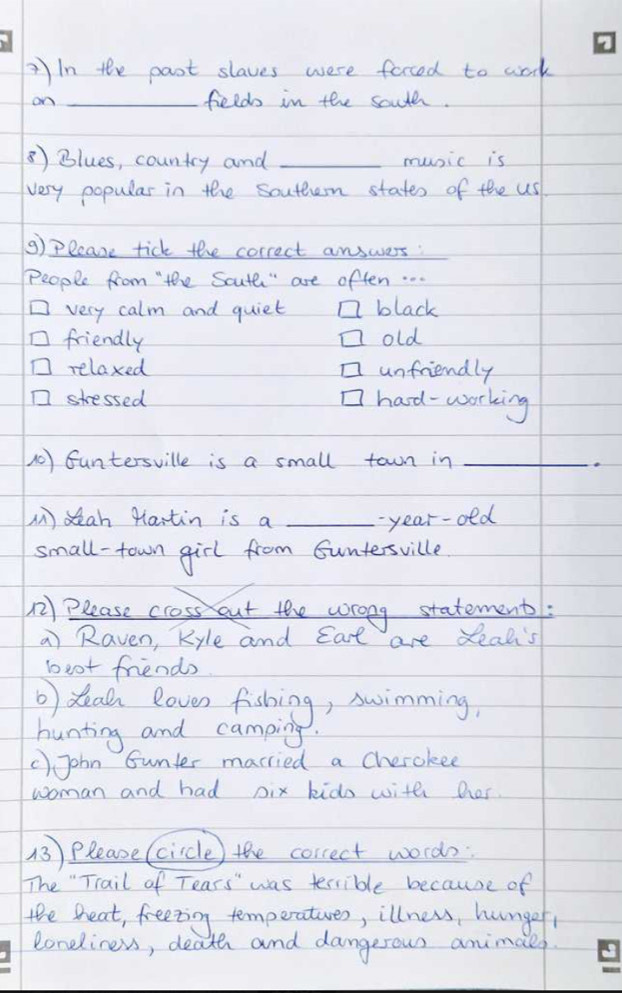 7) In the past slaves were forced to work
on __________ fields in the south.
8) Blues, country and __________ music is
very popular in the Southern states of the US.
9) Please tick the correct answers:
People from "the South" are often ...
□ very calm and quiet □ black
□ friendly □ old
□ relaxed □ unfriendly
□ stressed □ hard-working
10) Guntersville is a small town in __________.
11) Leah Martin is a ________-year-old
small-town girl from Guntersville.
12) Please cross out the wrong statements:
a) Raven, Kyle and Earl are Leah's
best friends.
b) Leah loves fishing, swimming,
hunting and camping.
c) John Gunter married a Cherokee
woman and had six kids with her.
13) Please circle the correct words:
The "Trail of Tears" was terrible because of
the heat, freezing temperatures, illness, hunger,
loneliness, death and dangerous animals.